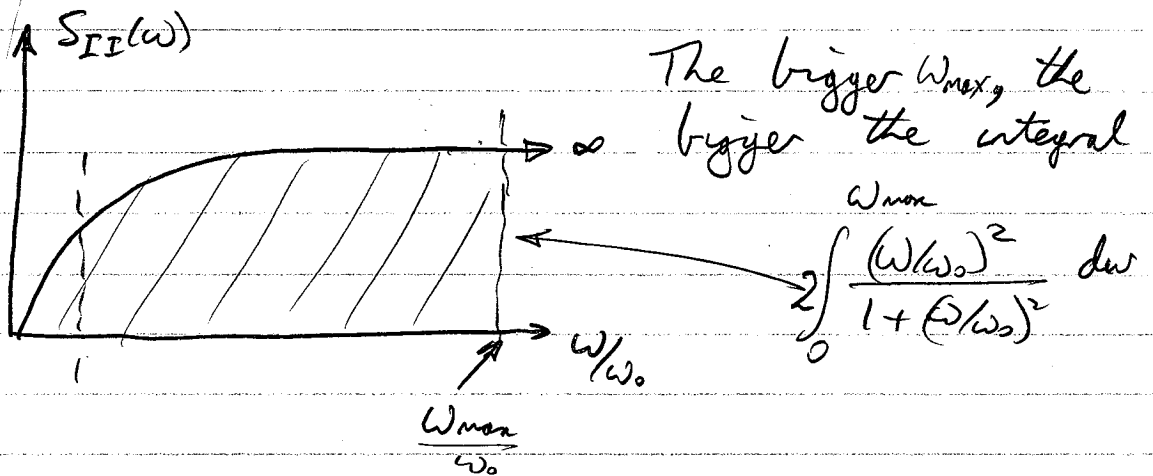 S_{II}(ω)
The bigger ω_{max}, the
bigger the integral
∞
2∫_0^{ω_{max}} \frac{(ω/ω_0)^2}{1 + (ω/ω_0)^2} dω
ω/ω_0
1
\frac{ω_{max}}{ω_0}